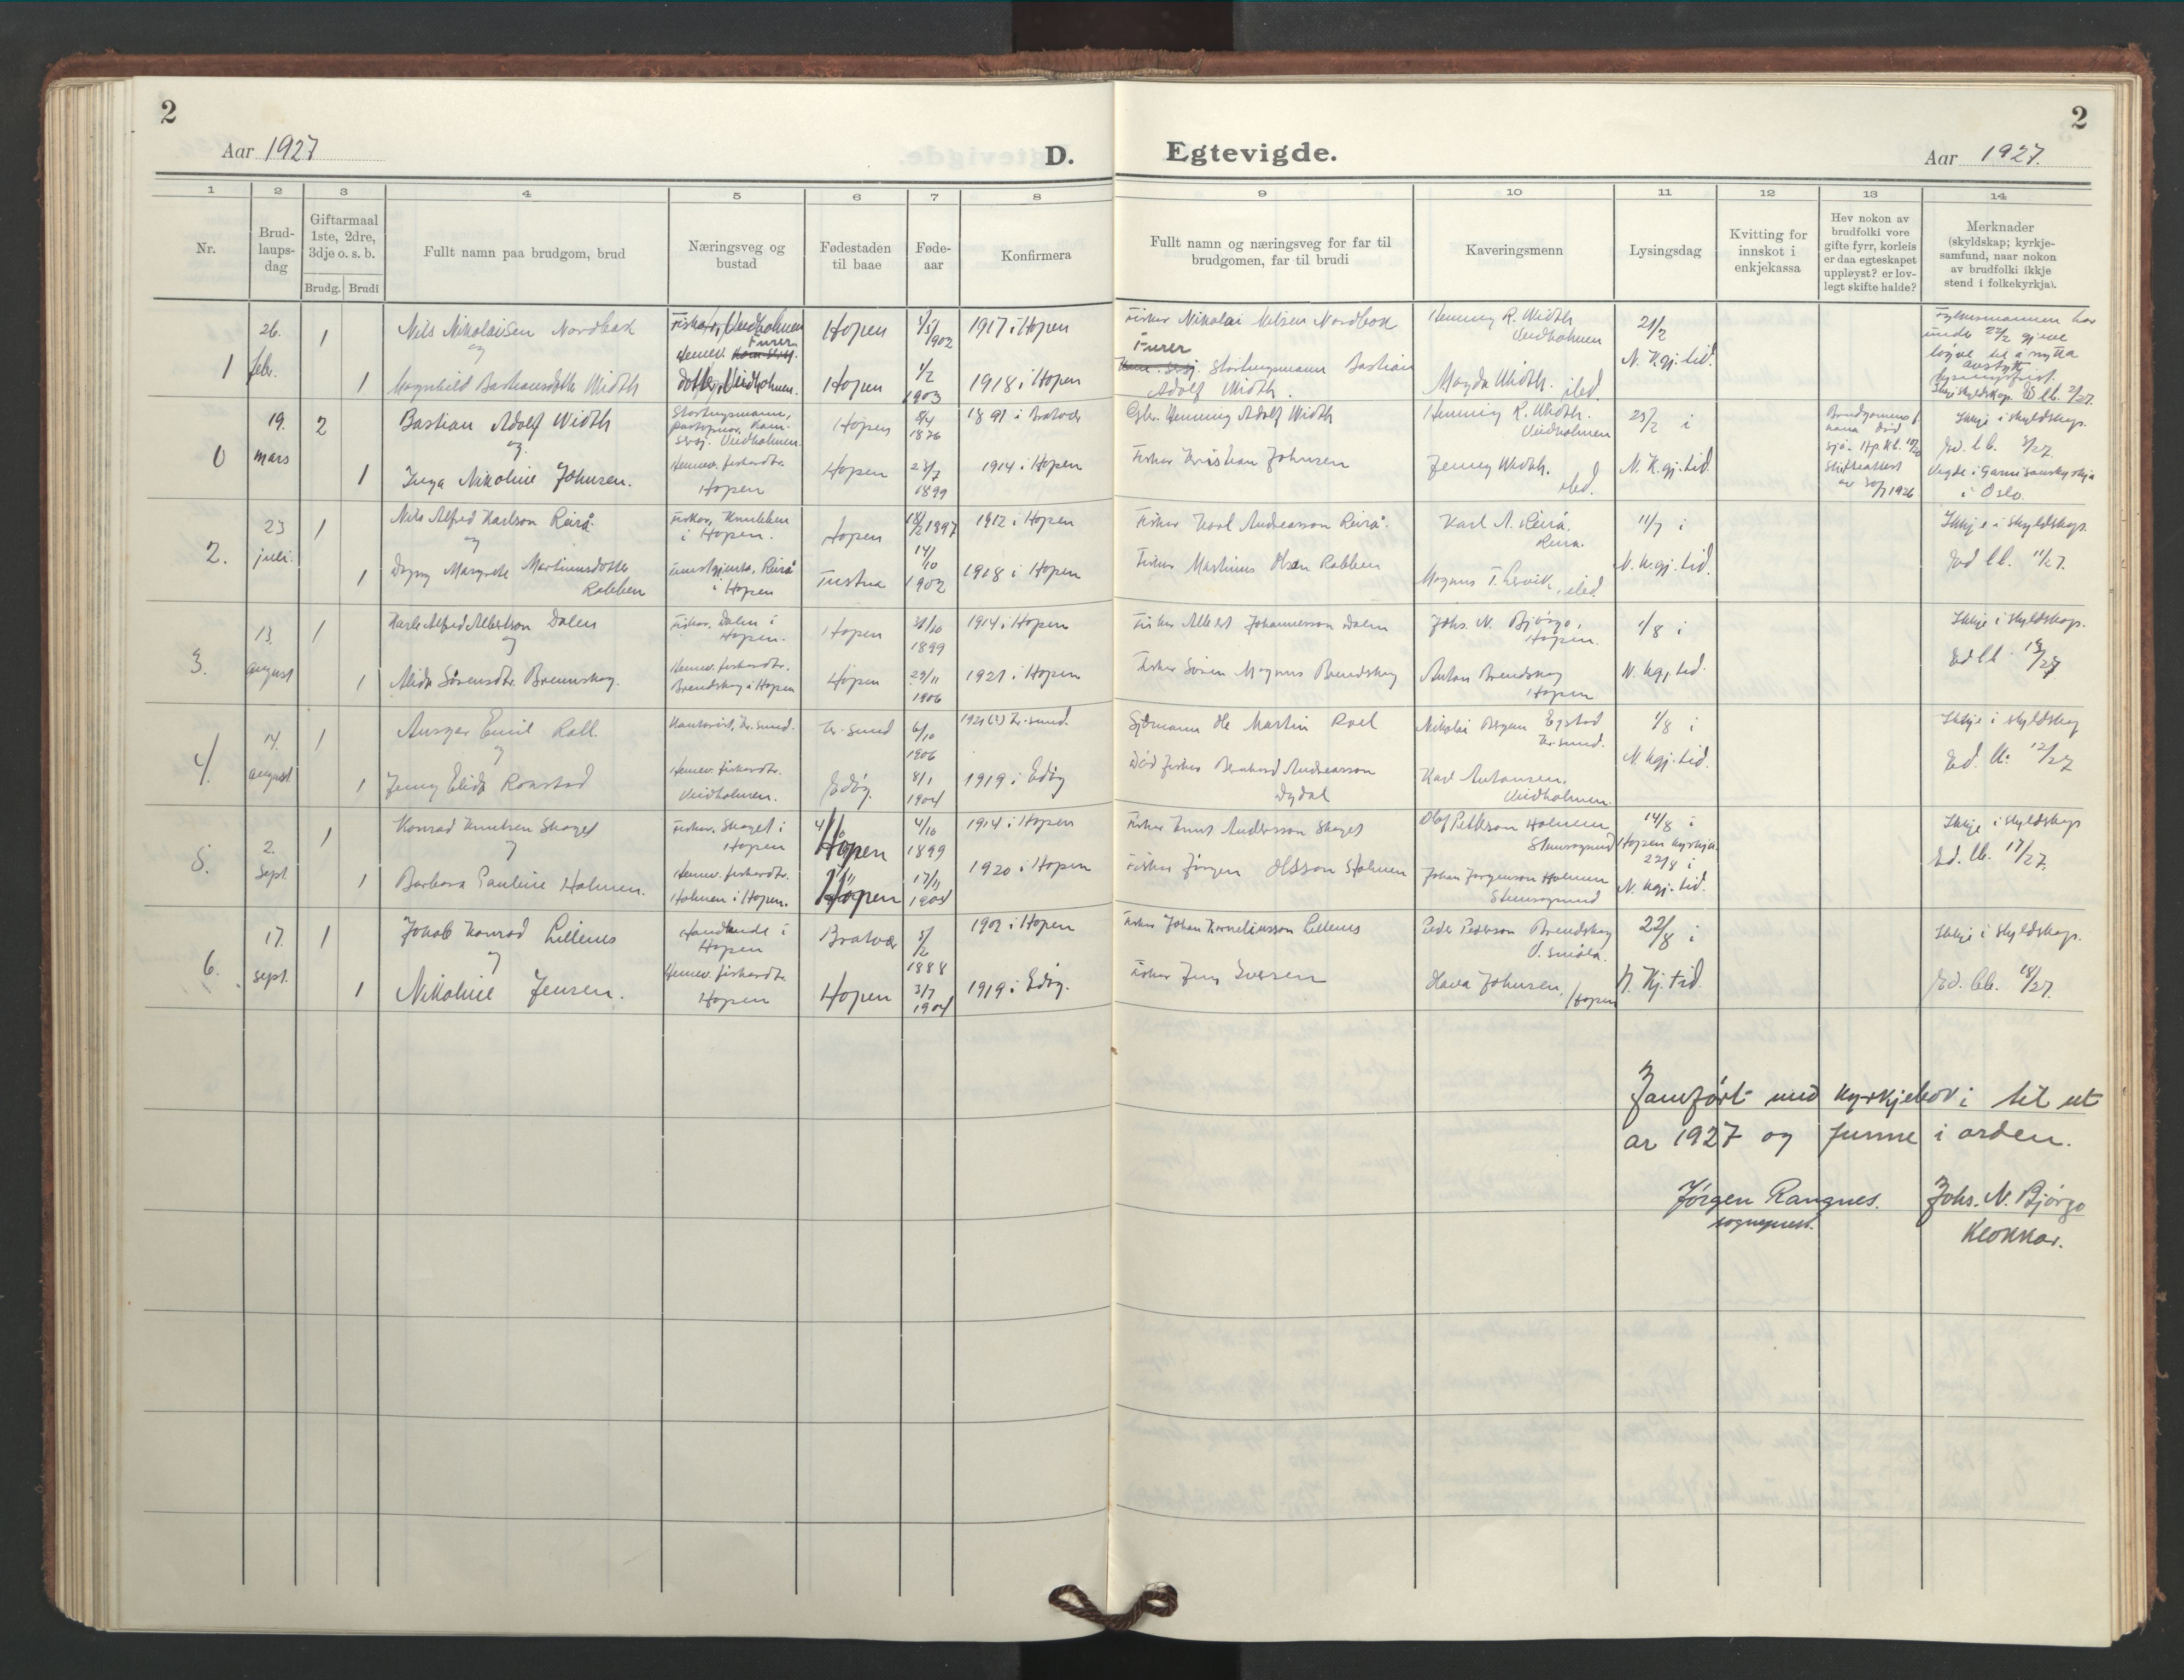 2
Aar 1927
D.
Egtevigde.
2
Aar 1927.
1 2 3 4 5 6 7 8 9 10 11 12 13 14
Nr.
Brud-
laups-
dag
Giftarmaal
1ste, 2dre,
3dje o. s. b.
Brudg. Brudi
Fullt namn paa brudgom, brud
Næringsveg og
bustad
Fødestaden
til baae
Føde-
aar
Konfirmera
Fullt namn og næringsveg for far til
brudgomen, far til brudi
Kaveringsmenn
Lysingsdag
Kvitting for
innskot i
enkjekassa
Hev nokon av
brudfolki vore
gifte fyrr, korleis
er daa egteskapet
uppløyst? er lov-
legt skifte halde?
Merknader
(skyldskap; kyrkje-
samfund, naar nokon
av brudfolki ikkje
stend i folkekyrkja).
1
26.
febr.
1
Nils Nikolaisen Nordbak
og
Fiskar, Veidholmen
Hopen
1902
1917 i Hopen
Fiskar Nikolai Nilsen Nordbak
Henning R. Width
Veidholmen
21/2
N. Kgj. tid.
1
Magnhild Bastiansdotter Width
Furer
dotter, Veidholmen.
Hopen
1/2
1903
1918 i Hopen
Furer
Stortingsmann Bastian
Adolf Width.
Magda Width. ibd.
0
19.
mars
2
Bastian Adolf Width
og
Stortingsmann,
Veidholmen.
Hopen
1876
1891 i Bratvær
Gbr. Henning Adolf Width
Henning R. Width.
Veidholmen
i
N. K. gj. tid.
Ikkje i skyldskap.
1
Inga Nikoline Johnsen.
Heimev. fiskardtr.
Hopen
Hopen
23/7
1899
1914 i Hopen
Fiskar Kristian Johnsen
Jenny Width.
ibd.
Vigde i Garnisonskyrkja
i Oslo.
2.
23
juli.
1
Nils Alfred Karlson Reirå.
og
Fiskar,
i Hopen.
Hopen
1897
1912 i Hopen
Fiskar Karl Andreasson Reirå.
Karl A. Reirå.
Reirå.
11/7 i
N. K. gj. tid.
Ikkje i skyldskap.
11/27.
1
Dagny Margrete Martinusdotter
Rabben
Tenestgjenta, Reirå
i Hopen
Tustna
14/10
1902
1918 i Hopen
Fiskar Martinus Olsen Rabben
Magnus T. Lervik, ibd.
3.
13.
august
1
Karle Alfred Albertson Dalen
og
Fiskar. Dalen i
Hopen.
Hopen
1899
1914 i Hopen
Fiskar Albert Johannesson Dalen
Johs. N. Bjørgo,
Hopen.
1/8 i
N. Kgj. tid.
Ikkje i skyldskap.
1
Alida Sørensdtr. Bremnskag.
Heimev. fiskardtr.
Brendskag i Hopen
Hopen
29/11
1906
1921 i Hopen
Fiskar Søren Magnus Brendskag
Anton Brendskag
Hopen
4.
14.
august
1
Ansgar Emil Roll.
og
Kontorist, Kr. sund.
Kr. sund
6/10
1906
1921 (?) Kr. sund.
Sjømann Ole Martin Roll
Nikolai Bergum Egstad
Kr. sund.
1/8 i
N. Kgj. tid.
Ikkje i skyldskap
12/27
1
Jenny Elida Ronstad
Heimev. fiskardtr.
Veidholmen.
Edøy.
8/1
1904
1919 i Edøy
Død fiskar Bernhard Andreasson
Karl Antonsen,
Veidholmen.
5.
2.
Sept.
1
Konrad Knutsen Skaget
og
Fiskar. Skaget i
Hopen
Hopen
4/10
1899
1914 i Hopen
Fiskar Knut Andersson Skaget
Olaf Petterson Holmen
14/8 i
Hopen kyrkja
22/8 i
N. Kgj. tid.
Ikkje i skyldskap
17/27.
1
Barbara Pauline Holmen.
Heimev. fiskardtr.
Holmen i Hopen.
Hopen
17/11
1904
1920 i Hopen
Fiskar Jørgen Olsson Holmen
Johan Jørgenson Holmen
6.
17.
sept.
1
Jakob Konrad Lillenes
og
Handlande i
Hopen
Bratvær
5/2
1888
1902 i Hopen
Fiskar Johan Korneliusson Lillenes
Peder Pederson Brendskag
22/8 i
N. Kj. tid.
Ikkje i skyldskap.
18/27.
1
Nikoline Jensen.
Heimev. fiskardtr.
Hopen
Hopen
3/7
1904
1919 i Edøy.
Fiskar Jens Iversen
Johnsen,
Hopen
Jamført med kyrkjebok i til ut
år 1927 og funne i orden.
Jørgen Rangnes.
sogneprest.
Johs. N. Bjørgo
Klokkar.